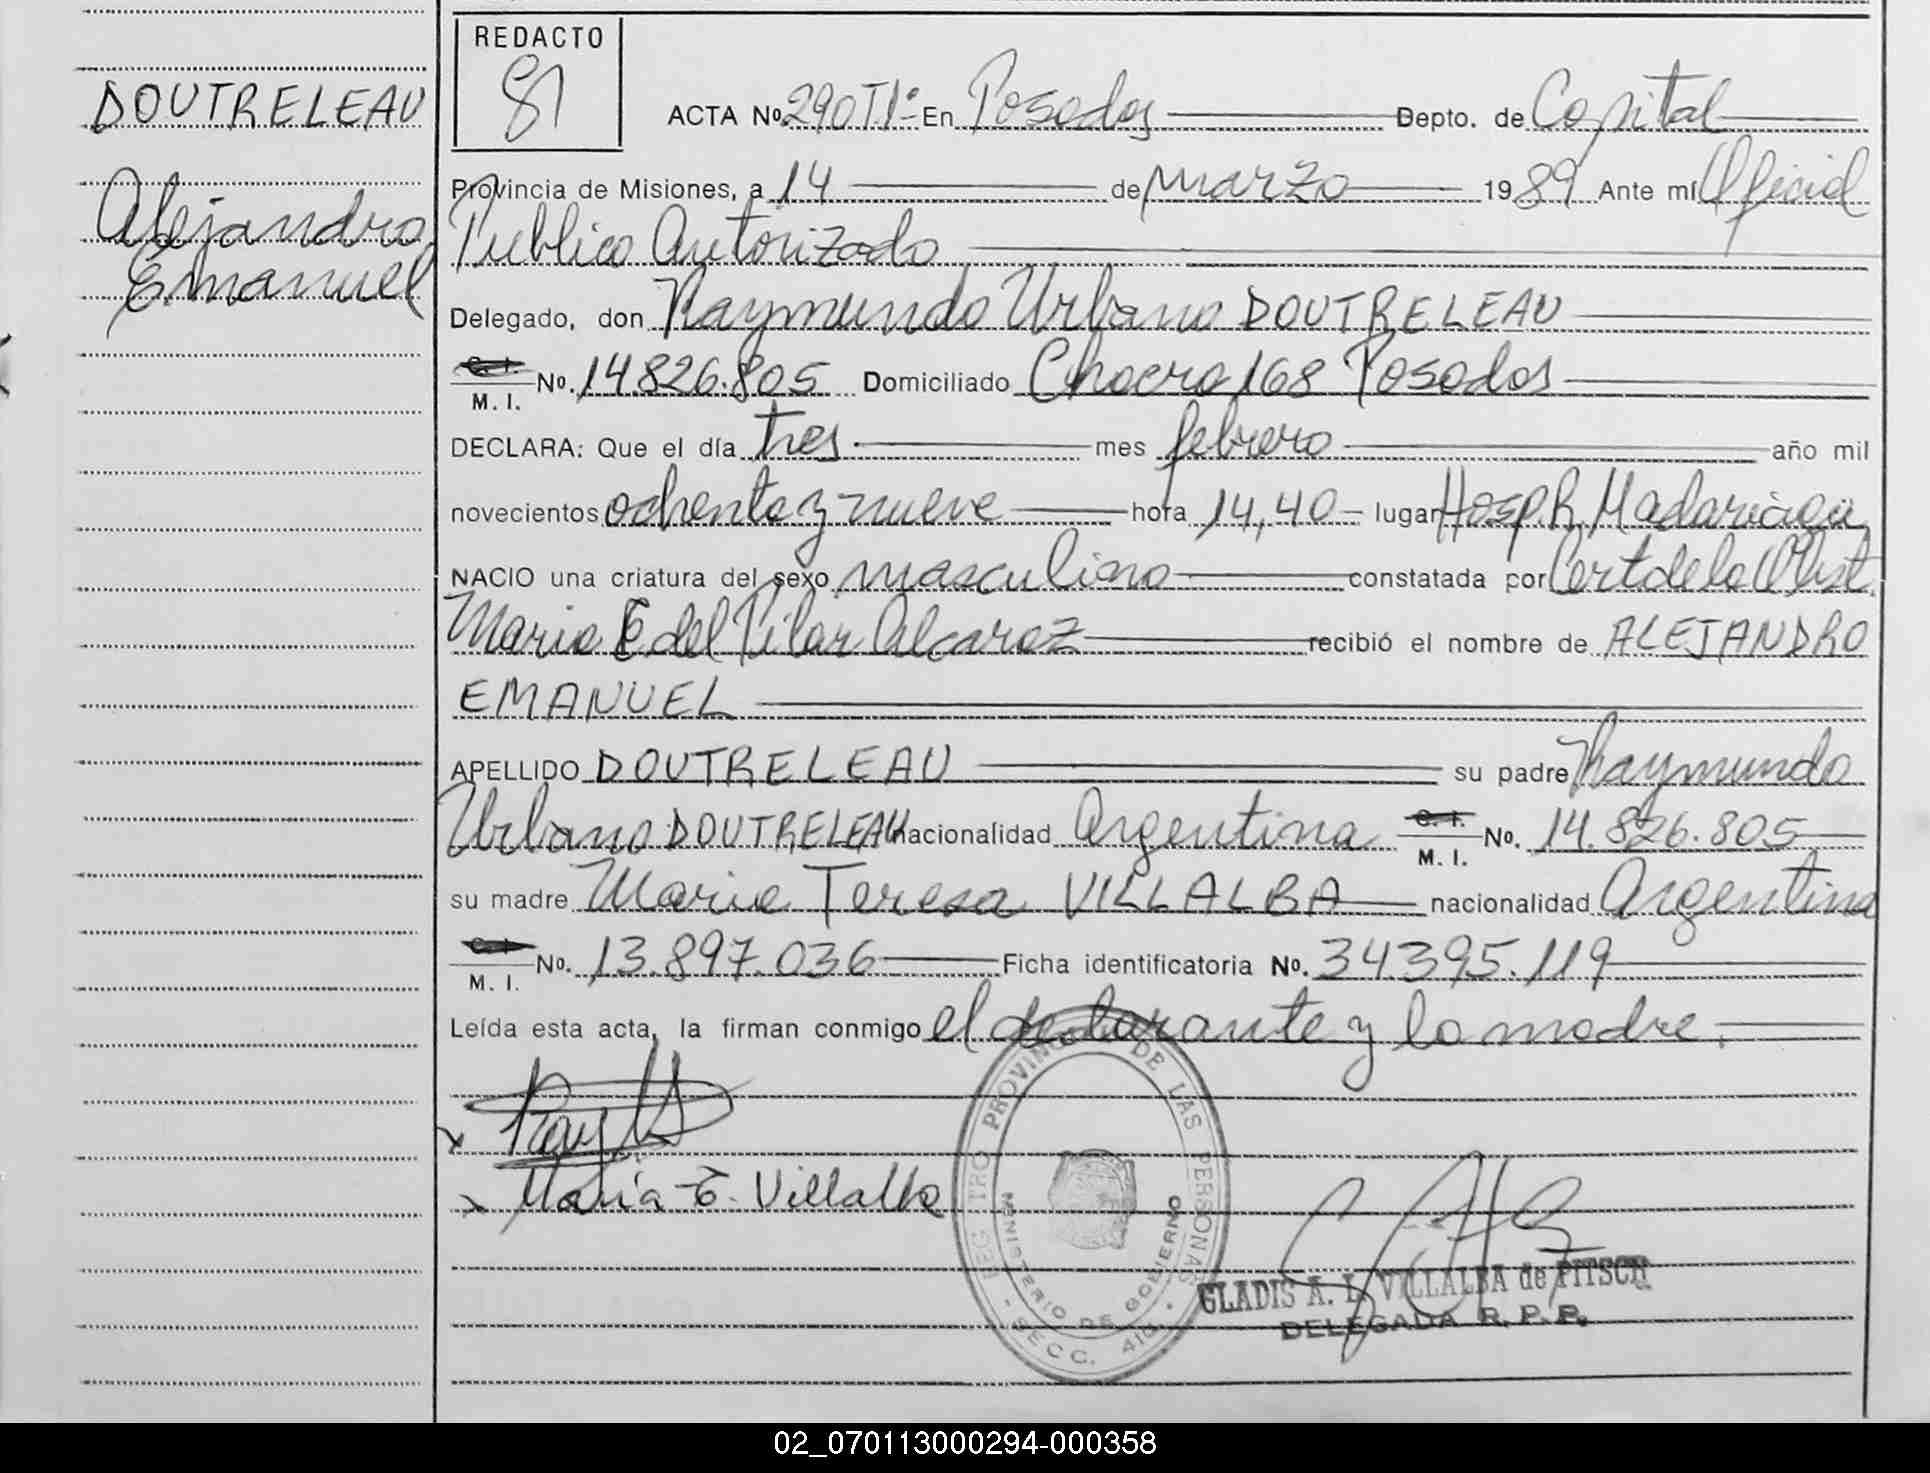 REDACTO
81
DOUTRELEAU
Alejandro
Emanuel
ACTA Nº 290 T1º- En Posadas Depto. de Capital
Provincia de Misiones, a 14 de marzo 1989 Ante mí Oficial
Publico Autorizado
Delegado, don Raymundo Urbano DOUTRELEAU
C. I.
M. I. Nº. 14.826.805 Domiciliado Chacra 168 Posadas
DECLARA: Que el día tres mes febrero año mil
novecientos ochenta y nueve hora 14,40 lugar Hosp. R. Madariaga
NACIO una criatura del sexo masculino constatada por Cert de la Obst.
Maria E del Pilar Alcaraz recibió el nombre de ALEJANDRO
EMANUEL
APELLIDO DOUTRELEAU su padre Raymundo
Urbano DOUTRELEAU nacionalidad Argentina C. I. M. I. Nº. 14.826.805
su madre Maria Teresa VILLALBA nacionalidad Argentina
M. I. Nº. 13.897.036 Ficha identificatoria Nº. 34395.119
Leída esta acta, la firman conmigo el declarante y la madre.
Maria T. Villalba
REGISTRO PROVINCIAL DE LAS PERSONAS
MINISTERIO DE GOBIERNO
SECC. 410
GLADIS A. L. VILLALBA de PITSCH
DELEGADA R. P. P.
02_070113000294-000358